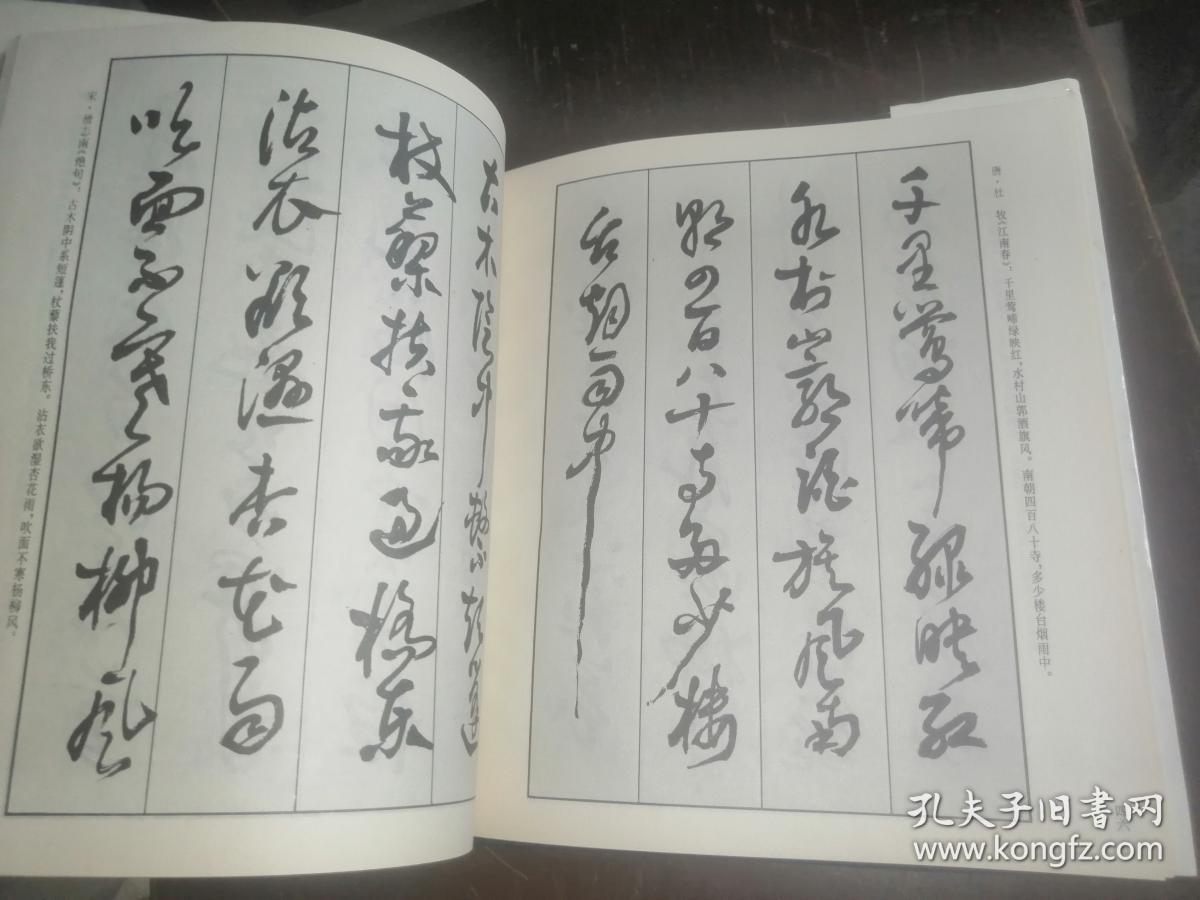 唐·杜 牧《江南春》：千里莺啼绿映红，水村山郭酒旗风。南朝四百八十寺，多少楼台烟雨中。
千里鶯啼緑映红
水村山郭酒旗风南
朝四百八十寺多少楼
台烟雨中
四六
古木陰中繫短篷
杖藜扶我过橋东
沾衣欲湿杏花雨
吹面不寒杨柳风
宋·僧志南《绝句》：古木阴中系短篷，杖藜扶我过桥东。沾衣欲湿杏花雨，吹面不寒杨柳风。
孔夫子旧书网
www.kongfz.com